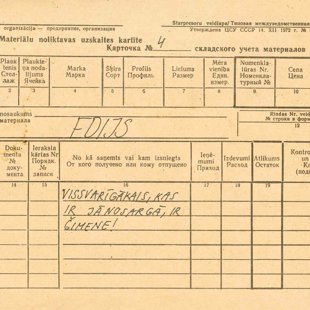 Starpresoru veidlapa/Типовая междуведомственная
organizācija — предприятие, организация
Утверждена ЦСУ СССР 14. XII 1972 г. №
Materiālu noliktavas uzskaites kartīte
Карточка № 4 складского учета материалов
Plaukts
Стеллаж
Plaukta nodalījums
Ячейка
Marka
Марка
Šķira
Сорт
Profils
Профиль
Lielums
Размер
Mēra vienība
Един. измер.
Nomenklatūras Nr.
Номенклатурный №
Cena
Цена
2 3 4 5 6 7 8 9 10
nosaukums
материала
EDIJS
Rindas Nr. veid
№ строки в форме
12
Dokumenta №
документа
Ieraksta kārtas Nr
Порядк. № записи
No kā saņemts vai kam izsniegts
От кого получено или кому отпущено
Ieņēmumi
Приход
Izdevumi
Расход
Atlikums
Остаток
14 15 16 17 18 19
VISSVARĪGĀKAIS, KAS
IR JĀNOSARGĀ, IR
ĢIMENE!